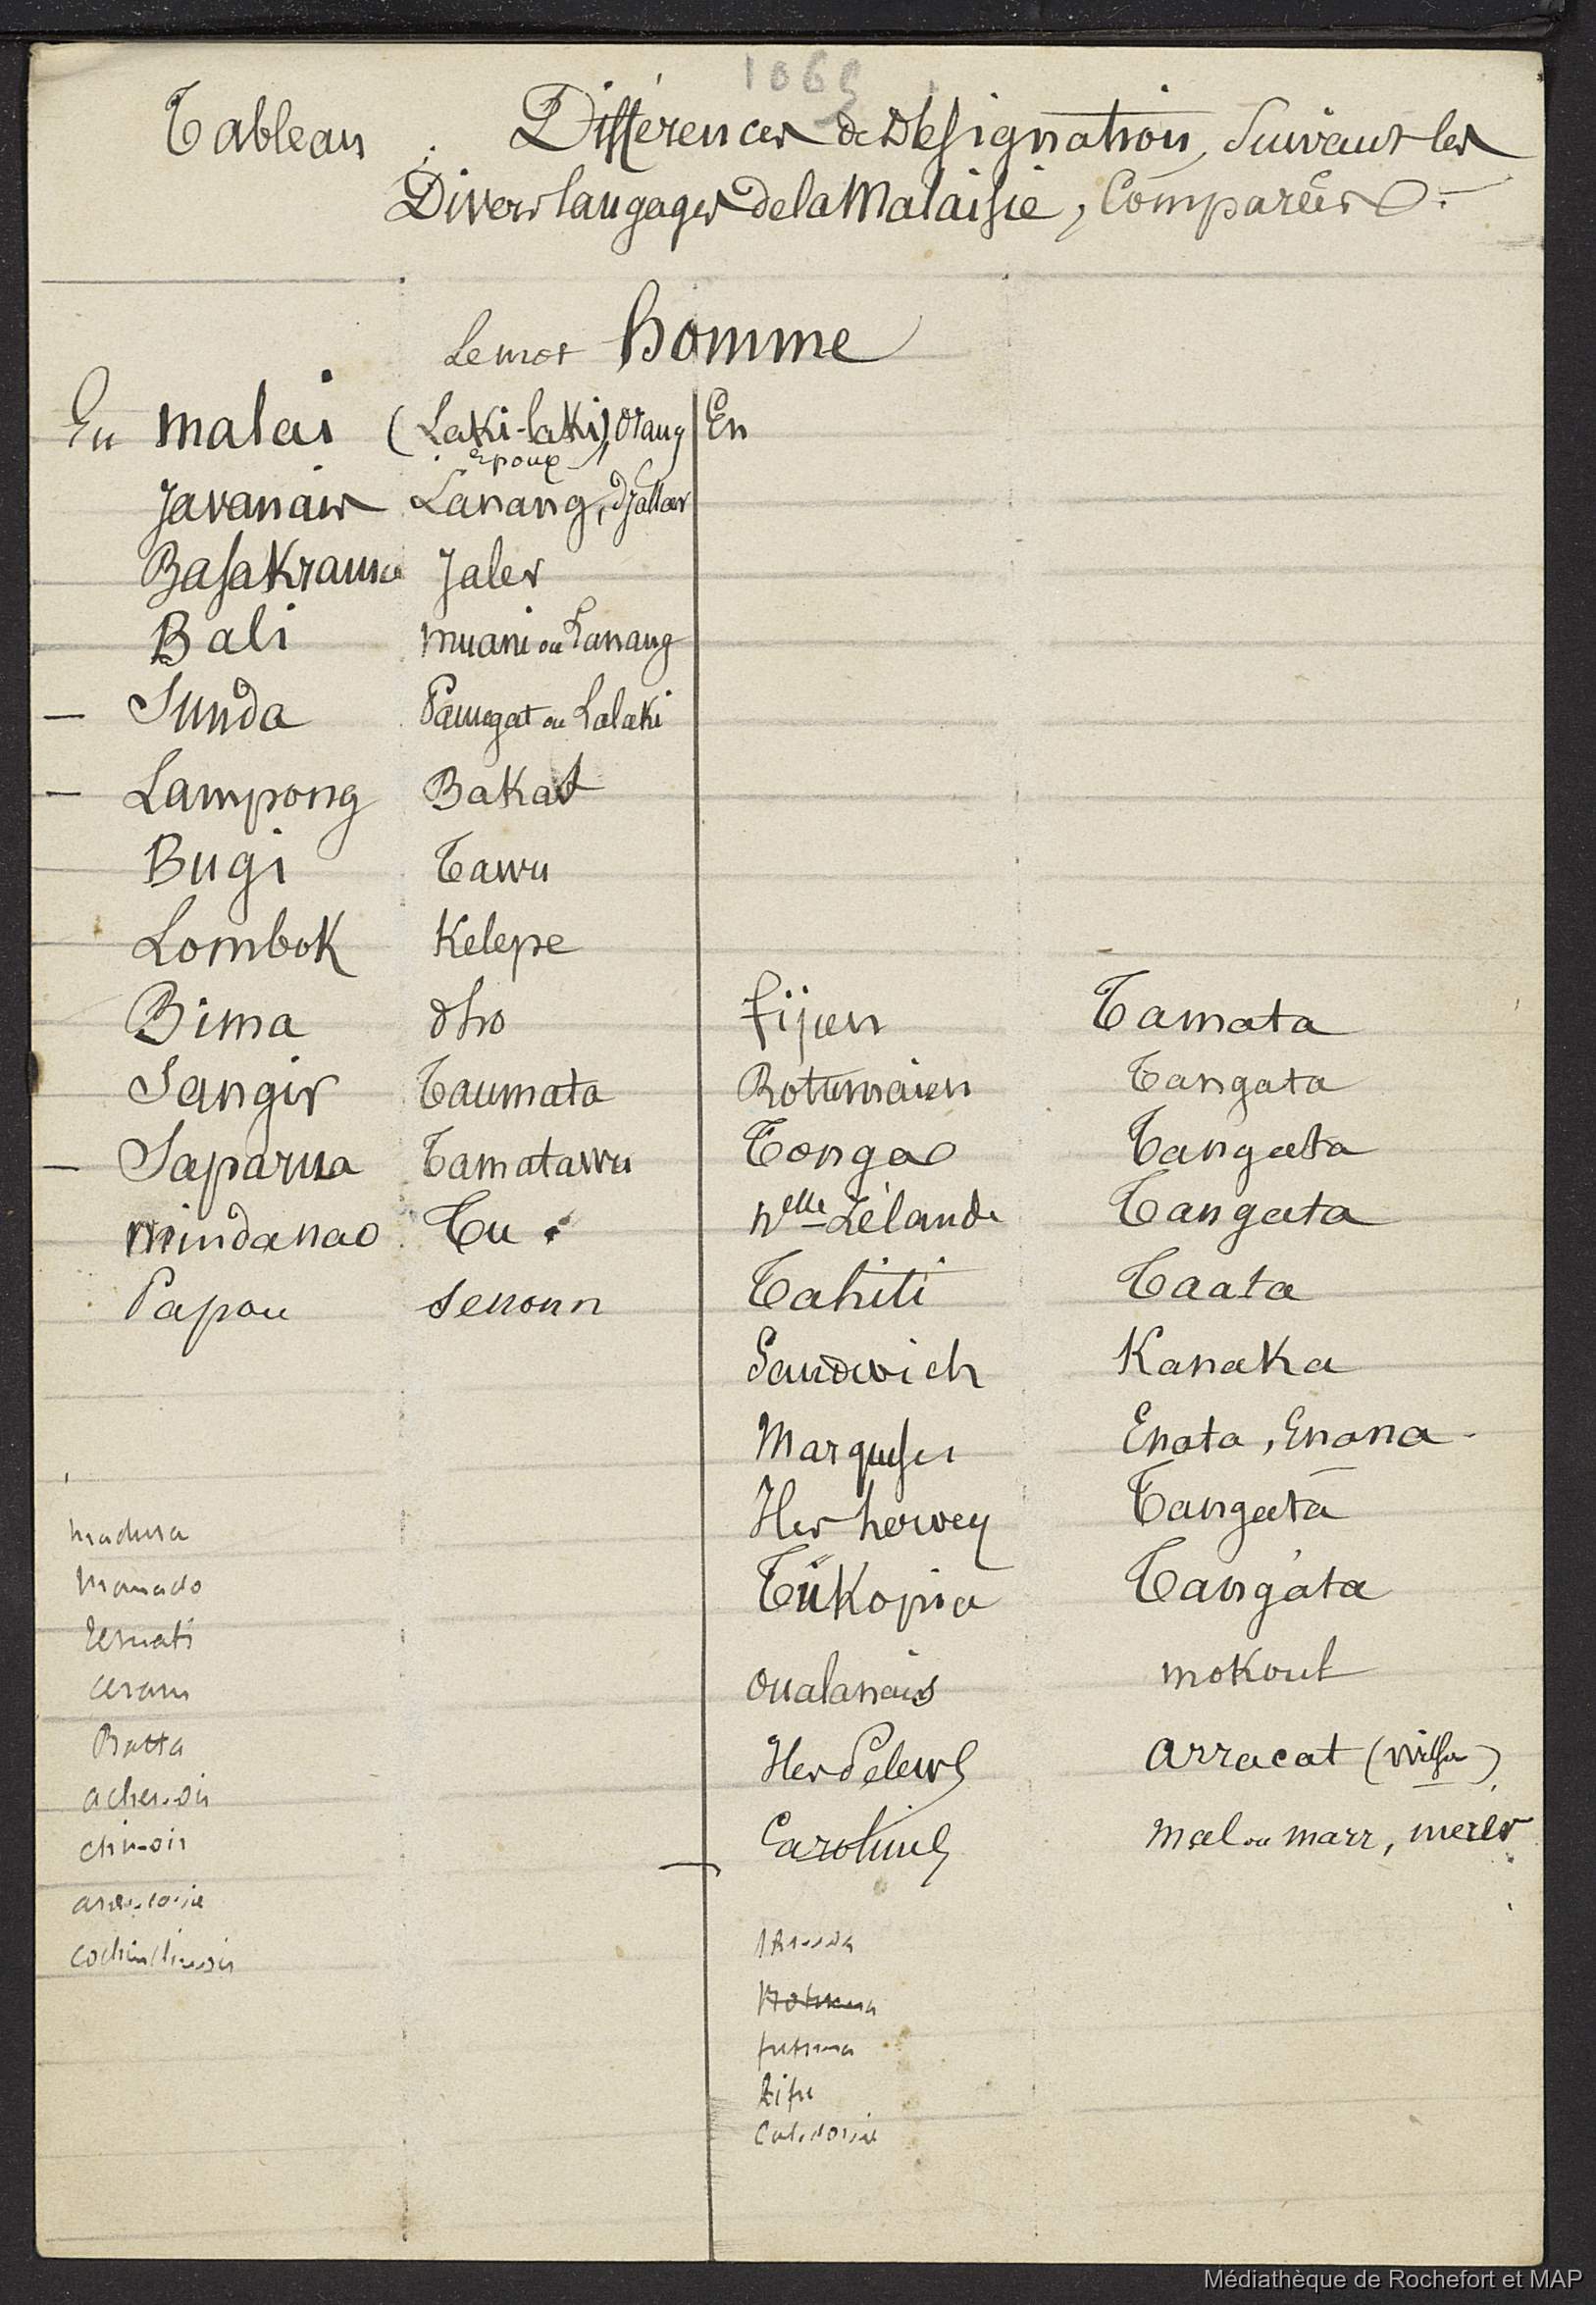 1065
Tableau : Différences de Désignation, Suivant les
Divers langages de la Malaisie, Comparées :
Le mot homme
En malais (Laki-laki), orang
époux
Javanais Lanang, djallar
Basakrama Jaler
Bali muani ou Lanang
Sunda Pamegat ou Lalaki
Lampong Bakas
Bugi Tawu
Lombok Kelepe
Bima dho
Sangir Taumata
Saparua Tamatawu
mindanao Tu
Papou senoun
madura
Manado
Ternati
Ceram
Batta
achenois
chinois
cochinchinois
En
fijien Tamata
Rotumaien Tangata
Tonga Tangata
nelle Zélande Tangata
Tahiti Taata
Sandwich Kanaka
Marquises Enata, Enana
Iles hervey Tangata
Tükopia Tangata
oualanais mokoul
Iles Pelews arracat (wilson)
Carolines mal ou marr, merer
Rotuma
futuna
Lifu
Caledonie
Médiathèque de Rochefort et MAP